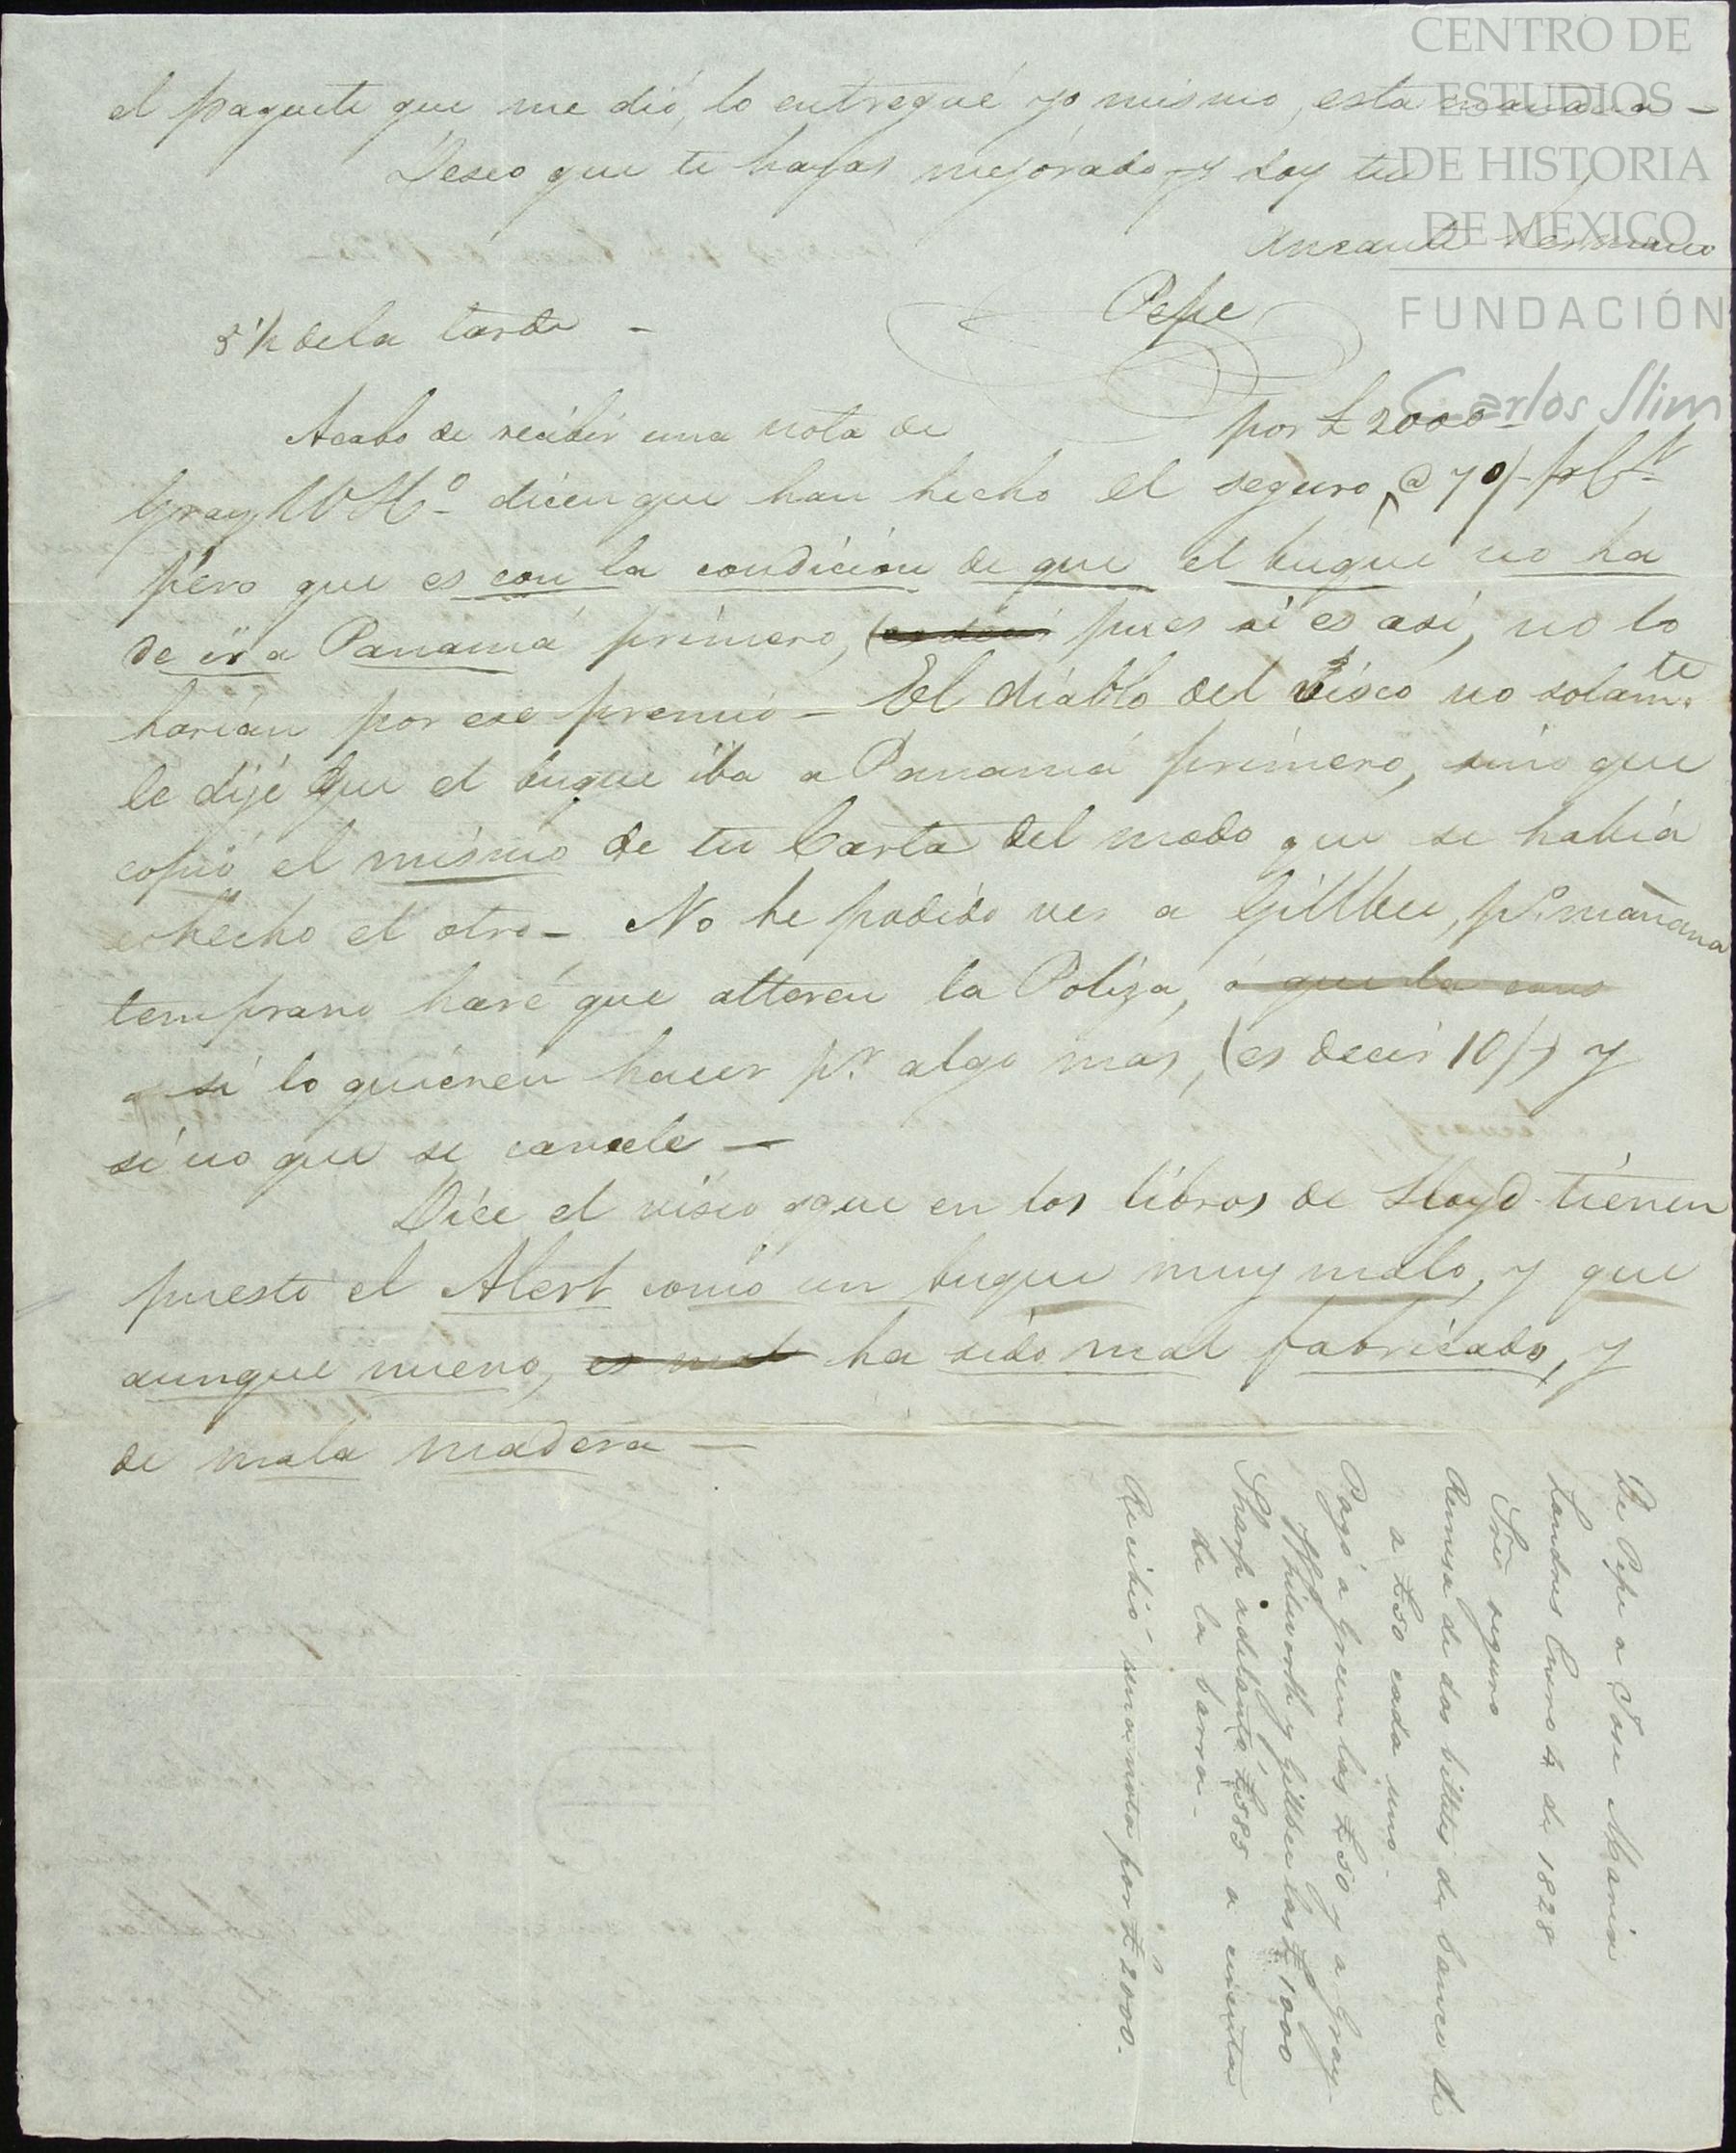 el paquete que me dió, lo entregué yo mismo, esta mañana —
Deseo que te hayas mejorado, y soy tu
Amante Hermano
Pepe
5½ de la tarde —
Acabo de recibir una nota de
por £2000
Gray W &Cº dicen que han hecho el seguro @ 70/-
pero que es con la condicion de que el buque no ha
de ir a Panamá primero, pues si es asi, no lo
harian por ese premio — El diablo del Visco no solamte
le dije que el buque iba a Panamá primero, sino que
copió el mismo de tu Carta del modo que se habia
hecho el otro — No he podido ver a Gillbee, po mañana
temprano haré que alteren la Poliza, ó que la
si lo quieren hacer pr algo mas, (es decir 10/-) y
si no que se cancele —
Dice el visco que en los libros de Lloyd tienen
puesto el Alert como un buque muy malo, y que
aunque nuevo, es mal ha sido mal fabricado, y
de mala madera —
De Pepe a Jose Maria
Londres Enero 4 de 1828
Sre seguro
Remesa de dos billetes de banco de
a £50 cada uno -
Pagó a Green las £50 y a Gray
Whitworth y Gillbee las £1000
Sharp adelantó £585 a cuenta
de la barra -
Recibió una nota por £2000 -
CENTRO DE
ESTUDIOS
DE HISTORIA
DE MÉXICO
FUNDACIÓN
Carlos Slim